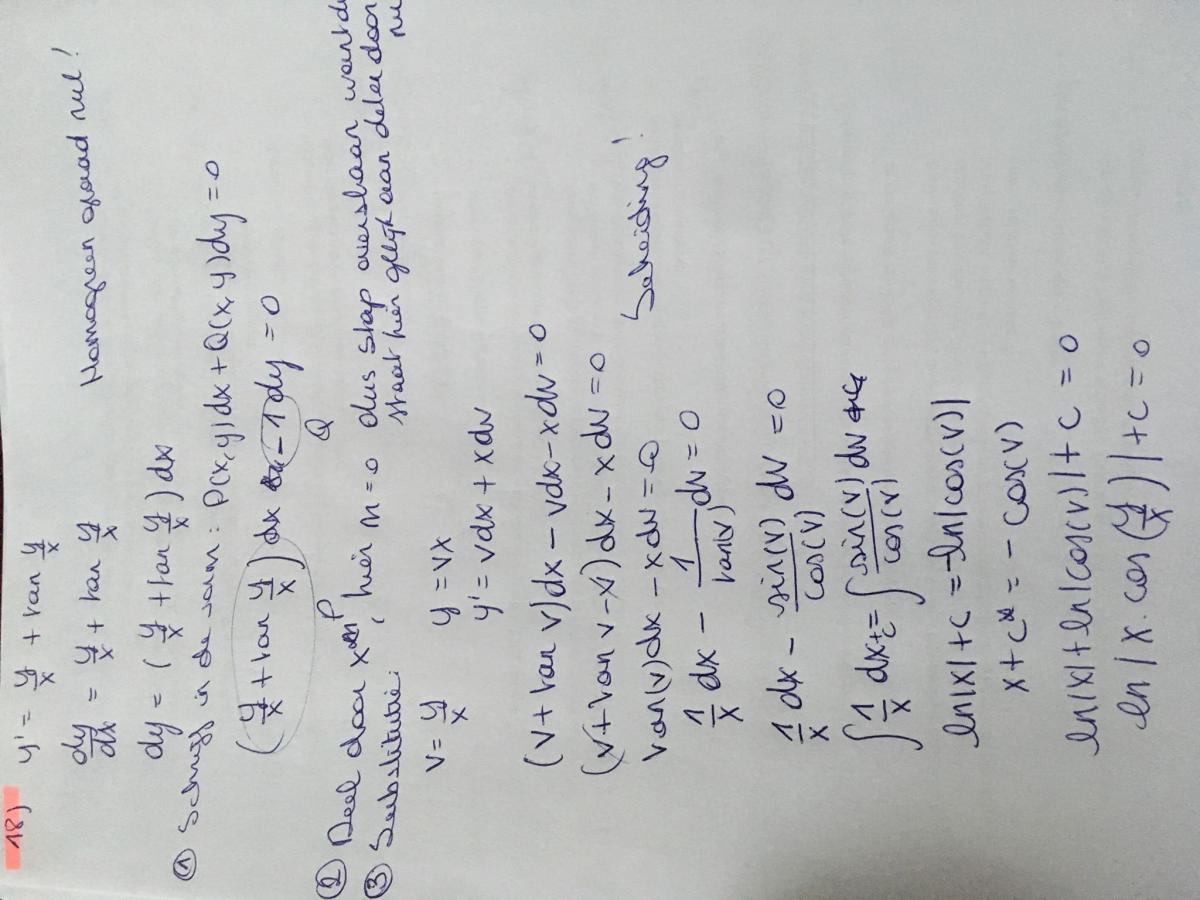 18) y' = y/x + tan y/x
dy/dx = y/x + tan y/x Homogeen graad nul!
dy = (y/x + tan y/x) dx
① Schrijf in de vorm: P(x,y)dx + Q(x,y)dy = 0
(y/x + tan y/x) dx - 1 dy = 0
P Q
② Deel door xᵐ, hier m = 0 dus stap overslaan want
③ Substitutie: staat hier gelijk aan delen door
v = y/x y = vx
y' = vdx + xdv
(v + tan v)dx - vdx - xdv = 0
(v + tan v - v)dx - xdv = 0
tan(v)dx - xdv = 0 Scheiding!
1/x dx - 1/tan(v) dv = 0
1/x dx - sin(v)/cos(v) dv = 0
∫ 1/x dx + c = ∫ sin(v)/cos(v) dv
ln|x| + c = -ln|cos(v)|
x + c* = - cos(v)
ln|x| + ln|cos(v)| + c = 0
ln|x · cos(y/x)| + c = 0